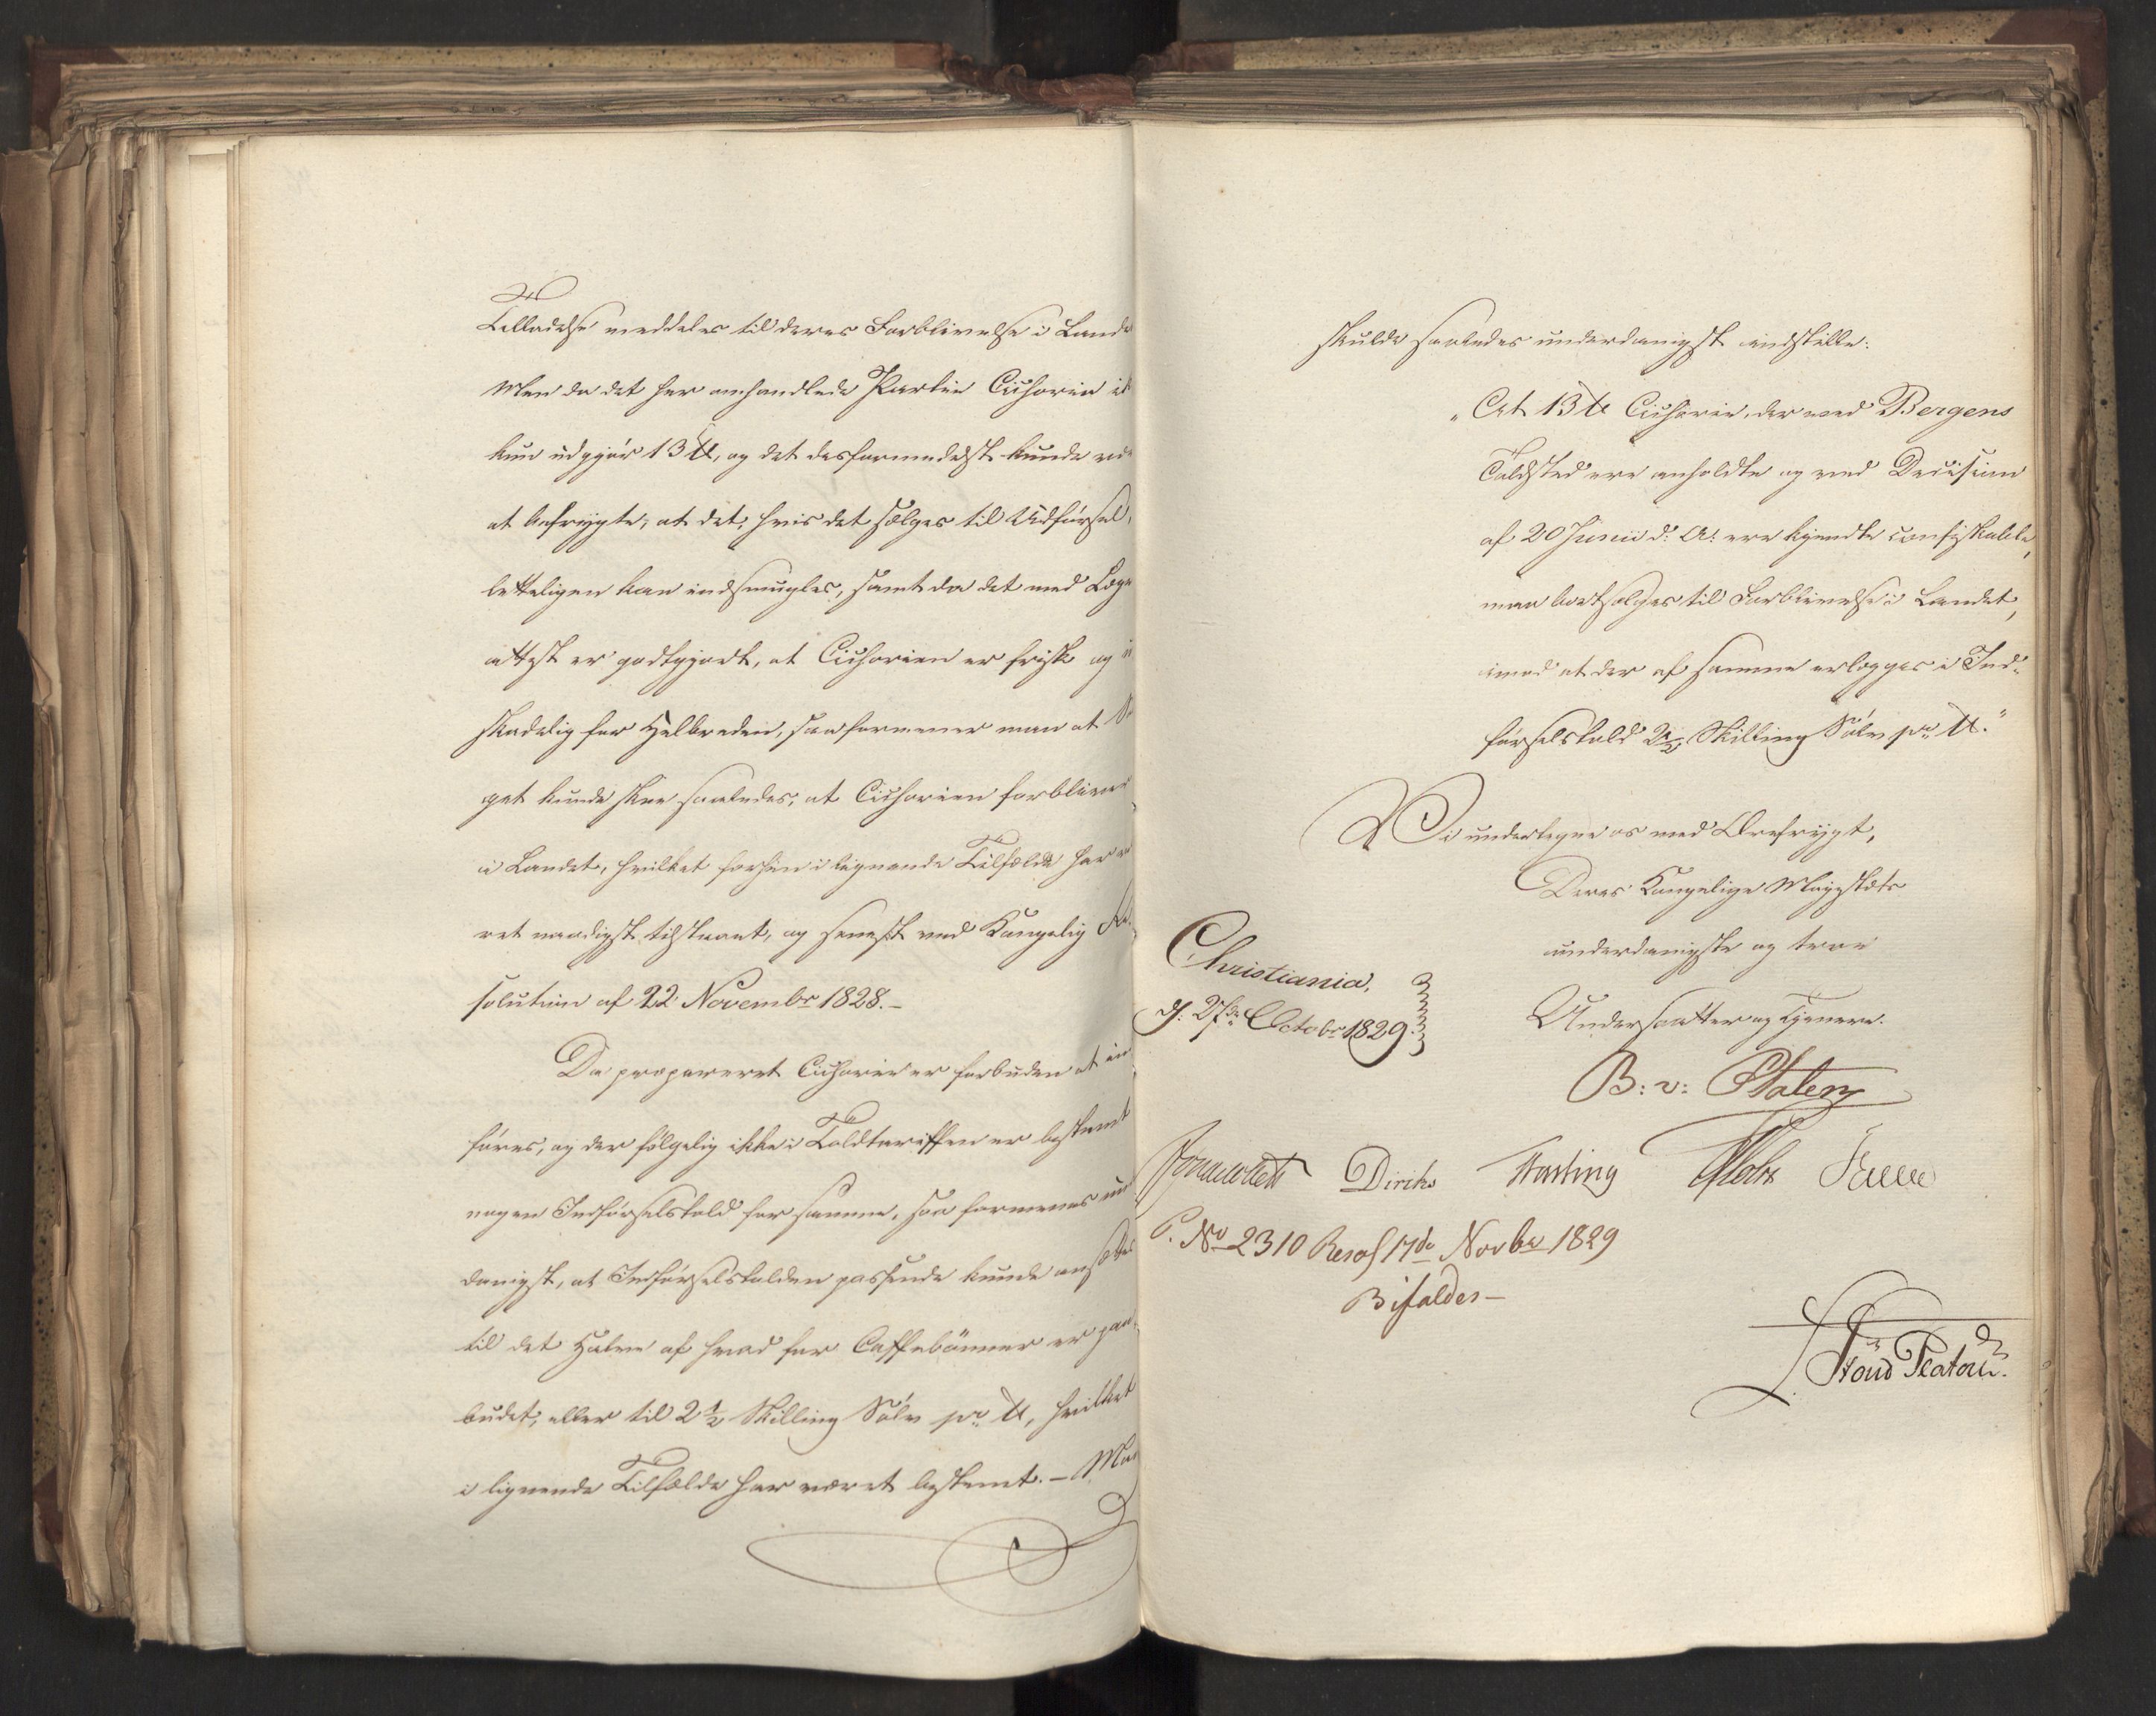 Tilladelse meddeles til deres Forblivelse i Lande
Men da det her omhandlede Partie Cichorie ik
kun udgjør 13 ℔, og det desformedelst kunde væ
at befrygte, at det, hvis det sælges til Udførsel,
letteligen kan indsmugles, samt da det med Læge
attest er godtgjort, at Cichorien er frisk og u
skadelig for Helbreden, saa formener man at Sa
get kunde skee saaledes, at Cichorien forbliver
i Landet, hvilket forhen i lignende Tilfælde har v
ret naadigst tilstaaet, og senest ved Kongelig Re
solution af 22 Novembr 1828.-
Da præpareret Cichorie er forbuden at in
føres, og der følgelig ikke i Toldtariffen er bestemt
nogen Indførselstold for samme, saa formenes un
danigst, at Indførselstolden passende kunde ansættes
til det Halve af hvad for Caffebønner er paa
budet, eller til 2½ Skilling Sølv pr ℔, hvilket
i lignende Tilfælde har været bestemt. - Man
skulde saaledes underdanigst indstille:
"At 13 ℔ Cichorie, der ved Bergens
Toldsted ere anholdte og ved Decision
af 20 Junii d: A: ere kjendte confiskable,
maa bortsælges til Forblivelse i Landet,
imod at der af samme erlægges i Ind-
førselstold 2½ Skilling Sølv pr ℔."
Vi undertegne os med Ærefrygt,
Deres Kongelige Majestæts
underdanigste og troe
Undersaatter og Tjenere.
Christiania,
d: 27de Octobr 1829.
B: v: Platen
Jonas Collett Diriks Fasting
P. No 2310 Resol 17de Novbr 1829
Bifaldes-
Stoud Platou.